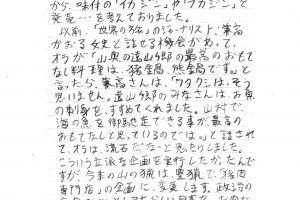 から、味付の「イカジン」や「ワカジン」と
発売…を考えておりました。
以前「世界の旅」のジャーナリスト、兼高
かおる女史と話せる機会があって、
オラが「山奥の遠山郷の最高のおもて
なし料理は、猪鍋、熊鍋です。」と
言ったら、兼高さんは、「ワタクシは、そう
思いません。遠山郷のみなさんは、お魚
の刺身を、すすめてくれました。山村で
海の魚を御馳走できる事が最高の
おもてなしと足しているのでは。」と話されて
、オラは、流石だなーと思ったりしました。
こういう立派な企画を実行したかったんで
すが、今年の山の猟は、豊猟で、「猪肉
専門店」の企画に、変更します。政治の